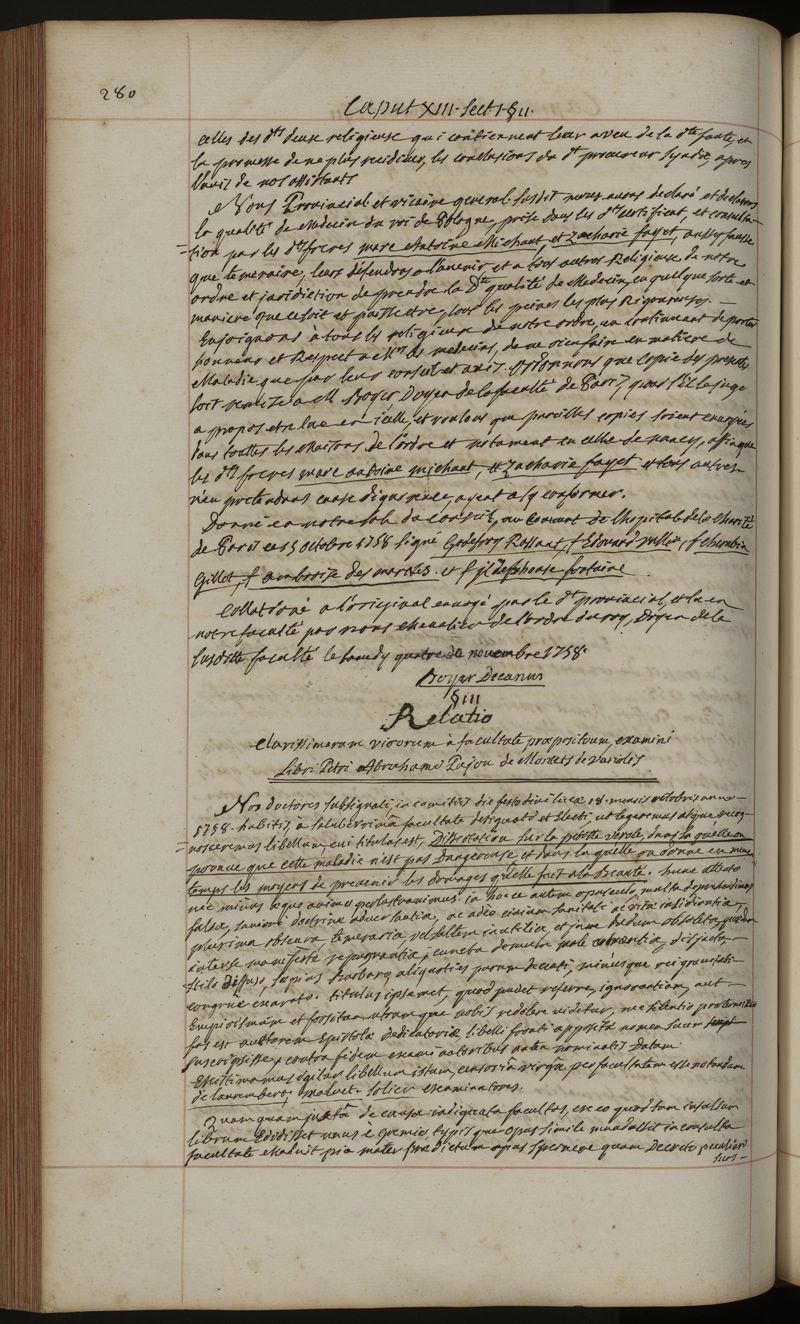 280
Caput XIII. Sect I. §II.
celles des dts deux religieux qui contiennent leur aveu de la dte faute, et
la promesse de ne plus recidiver, les conclusions du dt procureur syndic, apres
l'avis de nos assistants
Nous Provincial et vicaire general susdit nous avons declaré et declarons
la qualité de Medecin du roi de Pologne, prise dans les dts certificat, et consulta-
tion par les dts freres marc Antoine Michaut, et Zacharie fayet, aussy fausse
que temeraire, leurs défendons a l'avenir et a tous autres Religieux de notre
ordre et jurisdiction de prendre la Dte qualité de Medecin, en quelque sorte et
maniere que ce soit et puisse etre, sous les peines les plus Rigoureuses. —
Enjoignons à tous les religieux de notre ordre, en continuant de porter
honneur et Respect a Mrs les medecins, de ne rien faire en matiere de
Maladie que par leur conseil et avis. Ordonnons que copie des presentes
soit remize a M. Boyer Doyen de la faculté de Paris, pour s'il le juge
a propos etre lue en icelle, et voulons que pareilles copies soient envoyées
dans touttes les Maisons de l'ordre et notament en celle de nancy, affin que
les dts freres marc antoine michaut, et Zacharie fayet et tous autres
n'en pretendans cause d'ignorance, ayent a s'y conformer.
Donné en notre salle du conseil, au Couvent de l'hopital de la Charité
de Paris ce 15 octobre 1758 signé Godefroy Rassant, f Edouard , f cherubin
Gillot, f ambroise des marchés. et f jldephonse fontaine
Collationé a l'original envoyé par le dt provincial, et lu en
notre faculté par nous chevalier de l'ordre du roy, Doyen de la
susditte faculté le samedy quatre de novembre 1758.
Boyer Decanus
§III
Relatio
clarissimorum virorum à facultate præpositorum, examini
Libri Petri Abrahami Pajon de Moncets de Variolis
Nos doctores subsignati, in comitiis die festo divi lucæ 18. mensis octobris anno
1758. habitis, à saluberrimâ facultate designati et Electi, ut legeremus atque recog-
nosceremus libellum, cui titulus est, Dissertation sur la petitte Verole, dans la quelle on
prouve que cette maladie n'est pas Dangereuse et dans la quelle on donne en meme
temps les moyens de prevenir les ravages qu'elle fait a la Beauté. hunc attento
nec minus æquo animo perlustravimus. in hocce autem opusculo, multa deprehendimus
falsa, saniori doctrinæ adversantia, ac adeo civium sanitati ac vitæ insidiantia,
plurima obscura, temeraria, vel saltem inutilia et jam dudum obsoleta, quædam
inter se manifeste repugnantia, cuncta demum male cohærentia, disjecto,
stilo diffuso, sæpius Barbaro, aliquoties parum decenti, minusque rei gravitati
congruè exarato. titulus ipsemet, quod pudet referre, ignorantiam, aut
Empirismum et forsitan utrumque nobis redolere videtur, nec silentio prætermittendum
fas est auctorem Epistolæ dedicatoriæ libelli fronti appositæ nomen suum
suscripsisse, contra fidem examinatoribus antea nominatis datam
Existimamus igitur libellum istum, censoriâ virgâ per facultatem esse notandum
de laurembert, maloet, solier examinatores.
Quamquam justâ de causâ indignata facultas, ex eo quod tam insulsum
librum Edidisset unus è Gremio, typisque opus simile mandasset inconsulta
facultate Maluit pia mater prædictum opus spernere quam Decreto peculiari
suos —